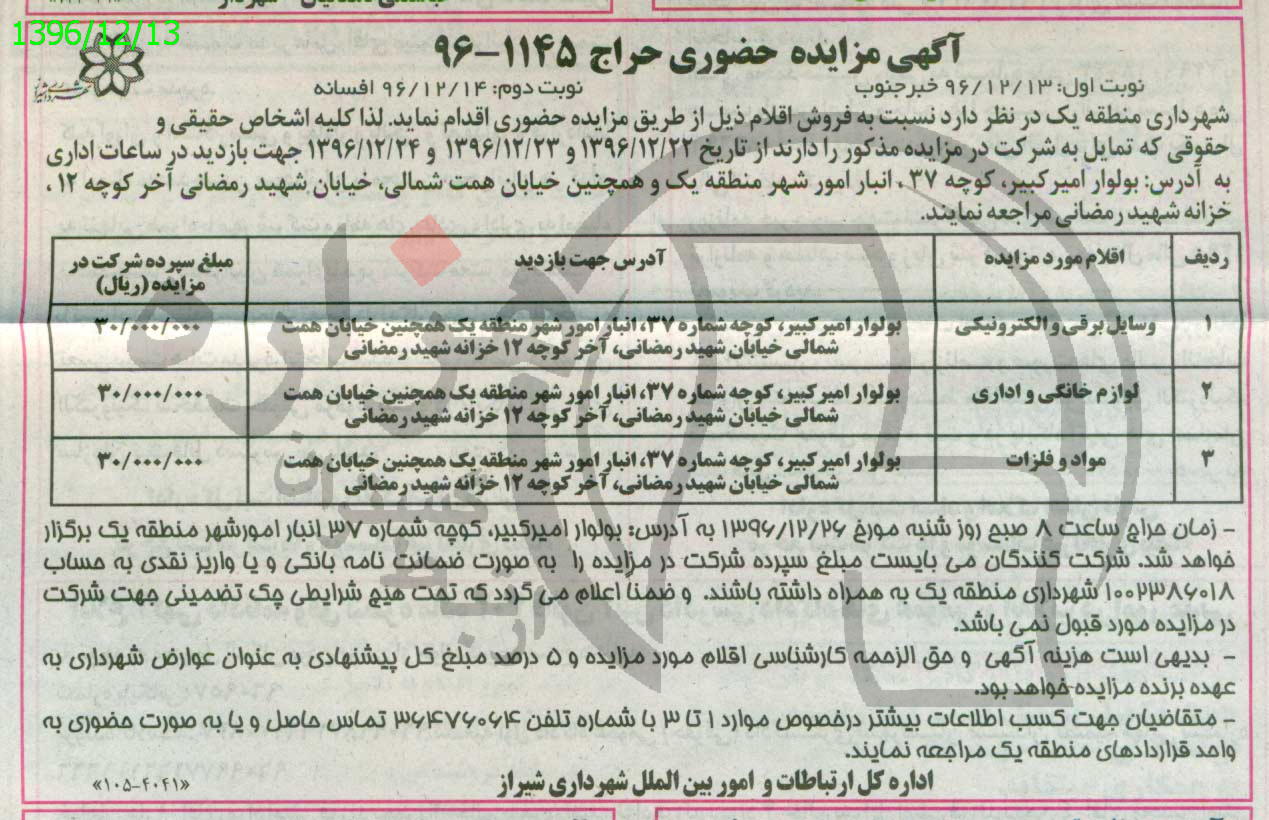 1396/12/13
آگهی مزایده حضوری حراج ۱۱۴۵-۹۶
نوبت اول: ۹۶/۱۲/۱۳ خبرجنوب
نوبت دوم: ۹۶/۱۲/۱۴ افسانه
شهرداری منطقه یک در نظر دارد نسبت به فروش اقلام ذیل از طریق مزایده حضوری اقدام نماید. لذا کلیه اشخاص حقیقی و
حقوقی که تمایل به شرکت در مزایده مذکور را دارند از تاریخ ۱۳۹۶/۱۲/۲۲ و ۱۳۹۶/۱۲/۲۳ و ۱۳۹۶/۱۲/۲۴ جهت بازدید در ساعات اداری
به آدرس: بولوار امیرکبیر، کوچه ۳۷ ، انبار امور شهر منطقه یک و همچنین خیابان همت شمالی، خیابان شهید رمضانی آخر کوچه ۱۲ ،
خزانه شهید رمضانی مراجعه نمایند.
ردیف اقلام مورد مزایده آدرس جهت بازدید مبلغ سپرده شرکت در
مزایده (ریال)
۱ وسایل برقی و الکترونیکی بولوار امیرکبیر، کوچه شماره ۳۷، انبار امور شهر منطقه یک همچنین خیابان همت ۳۰/۰۰۰/۰۰۰
شمالی خیابان شهید رمضانی، آخر کوچه ۱۲ خزانه شهید رمضانی
۲ لوازم خانگی و اداری بولوار امیرکبیر، کوچه شماره ۳۷، انبار امور شهر منطقه یک همچنین خیابان همت ۳۰/۰۰۰/۰۰۰
شمالی خیابان شهید رمضانی، آخر کوچه ۱۲ خزانه شهید رمضانی
۳ مواد و فلزات بولوار امیرکبیر، کوچه شماره ۳۷، انبار امور شهر منطقه یک همچنین خیابان همت ۳۰/۰۰۰/۰۰۰
شمالی خیابان شهید رمضانی، آخر کوچه ۱۲ خزانه شهید رمضانی
- زمان حراج ساعت ۸ صبح روز شنبه مورخ ۱۳۹۶/۱۲/۲۶ به آدرس: بولوار امیرکبیر، کوچه شماره ۳۷ انبار امورشهر منطقه یک برگزار
خواهد شد. شرکت کنندگان می بایست مبلغ سپرده شرکت در مزایده را به صورت ضمانت نامه بانکی و یا واریز نقدی به حساب
۱۰۰۲۳۸۶۰۱۸ شهرداری منطقه یک به همراه داشته باشند. و ضمنا اعلام می گردد که تحت هیچ شرایطی چک تضمینی جهت شرکت
در مزایده مورد قبول نمی باشد.
- بدیهی است هزینه آگهی و حق الزحمه کارشناسی اقلام مورد مزایده و ۵ درصد مبلغ کل پیشنهادی به عنوان عوارض شهرداری به
عهده برنده مزایده خواهد بود.
- متقاضیان جهت کسب اطلاعات بیشتر درخصوص موارد ۱ تا ۳ با شماره تلفن ۳۶۴۷۶۰۶۴ تماس حاصل و یا به صورت حضوری به
واحد قراردادهای منطقه یک مراجعه نمایند.
اداره کل ارتباطات و امور بین الملل شهرداری شیراز
«۱۰۵-۴۰۴۱»